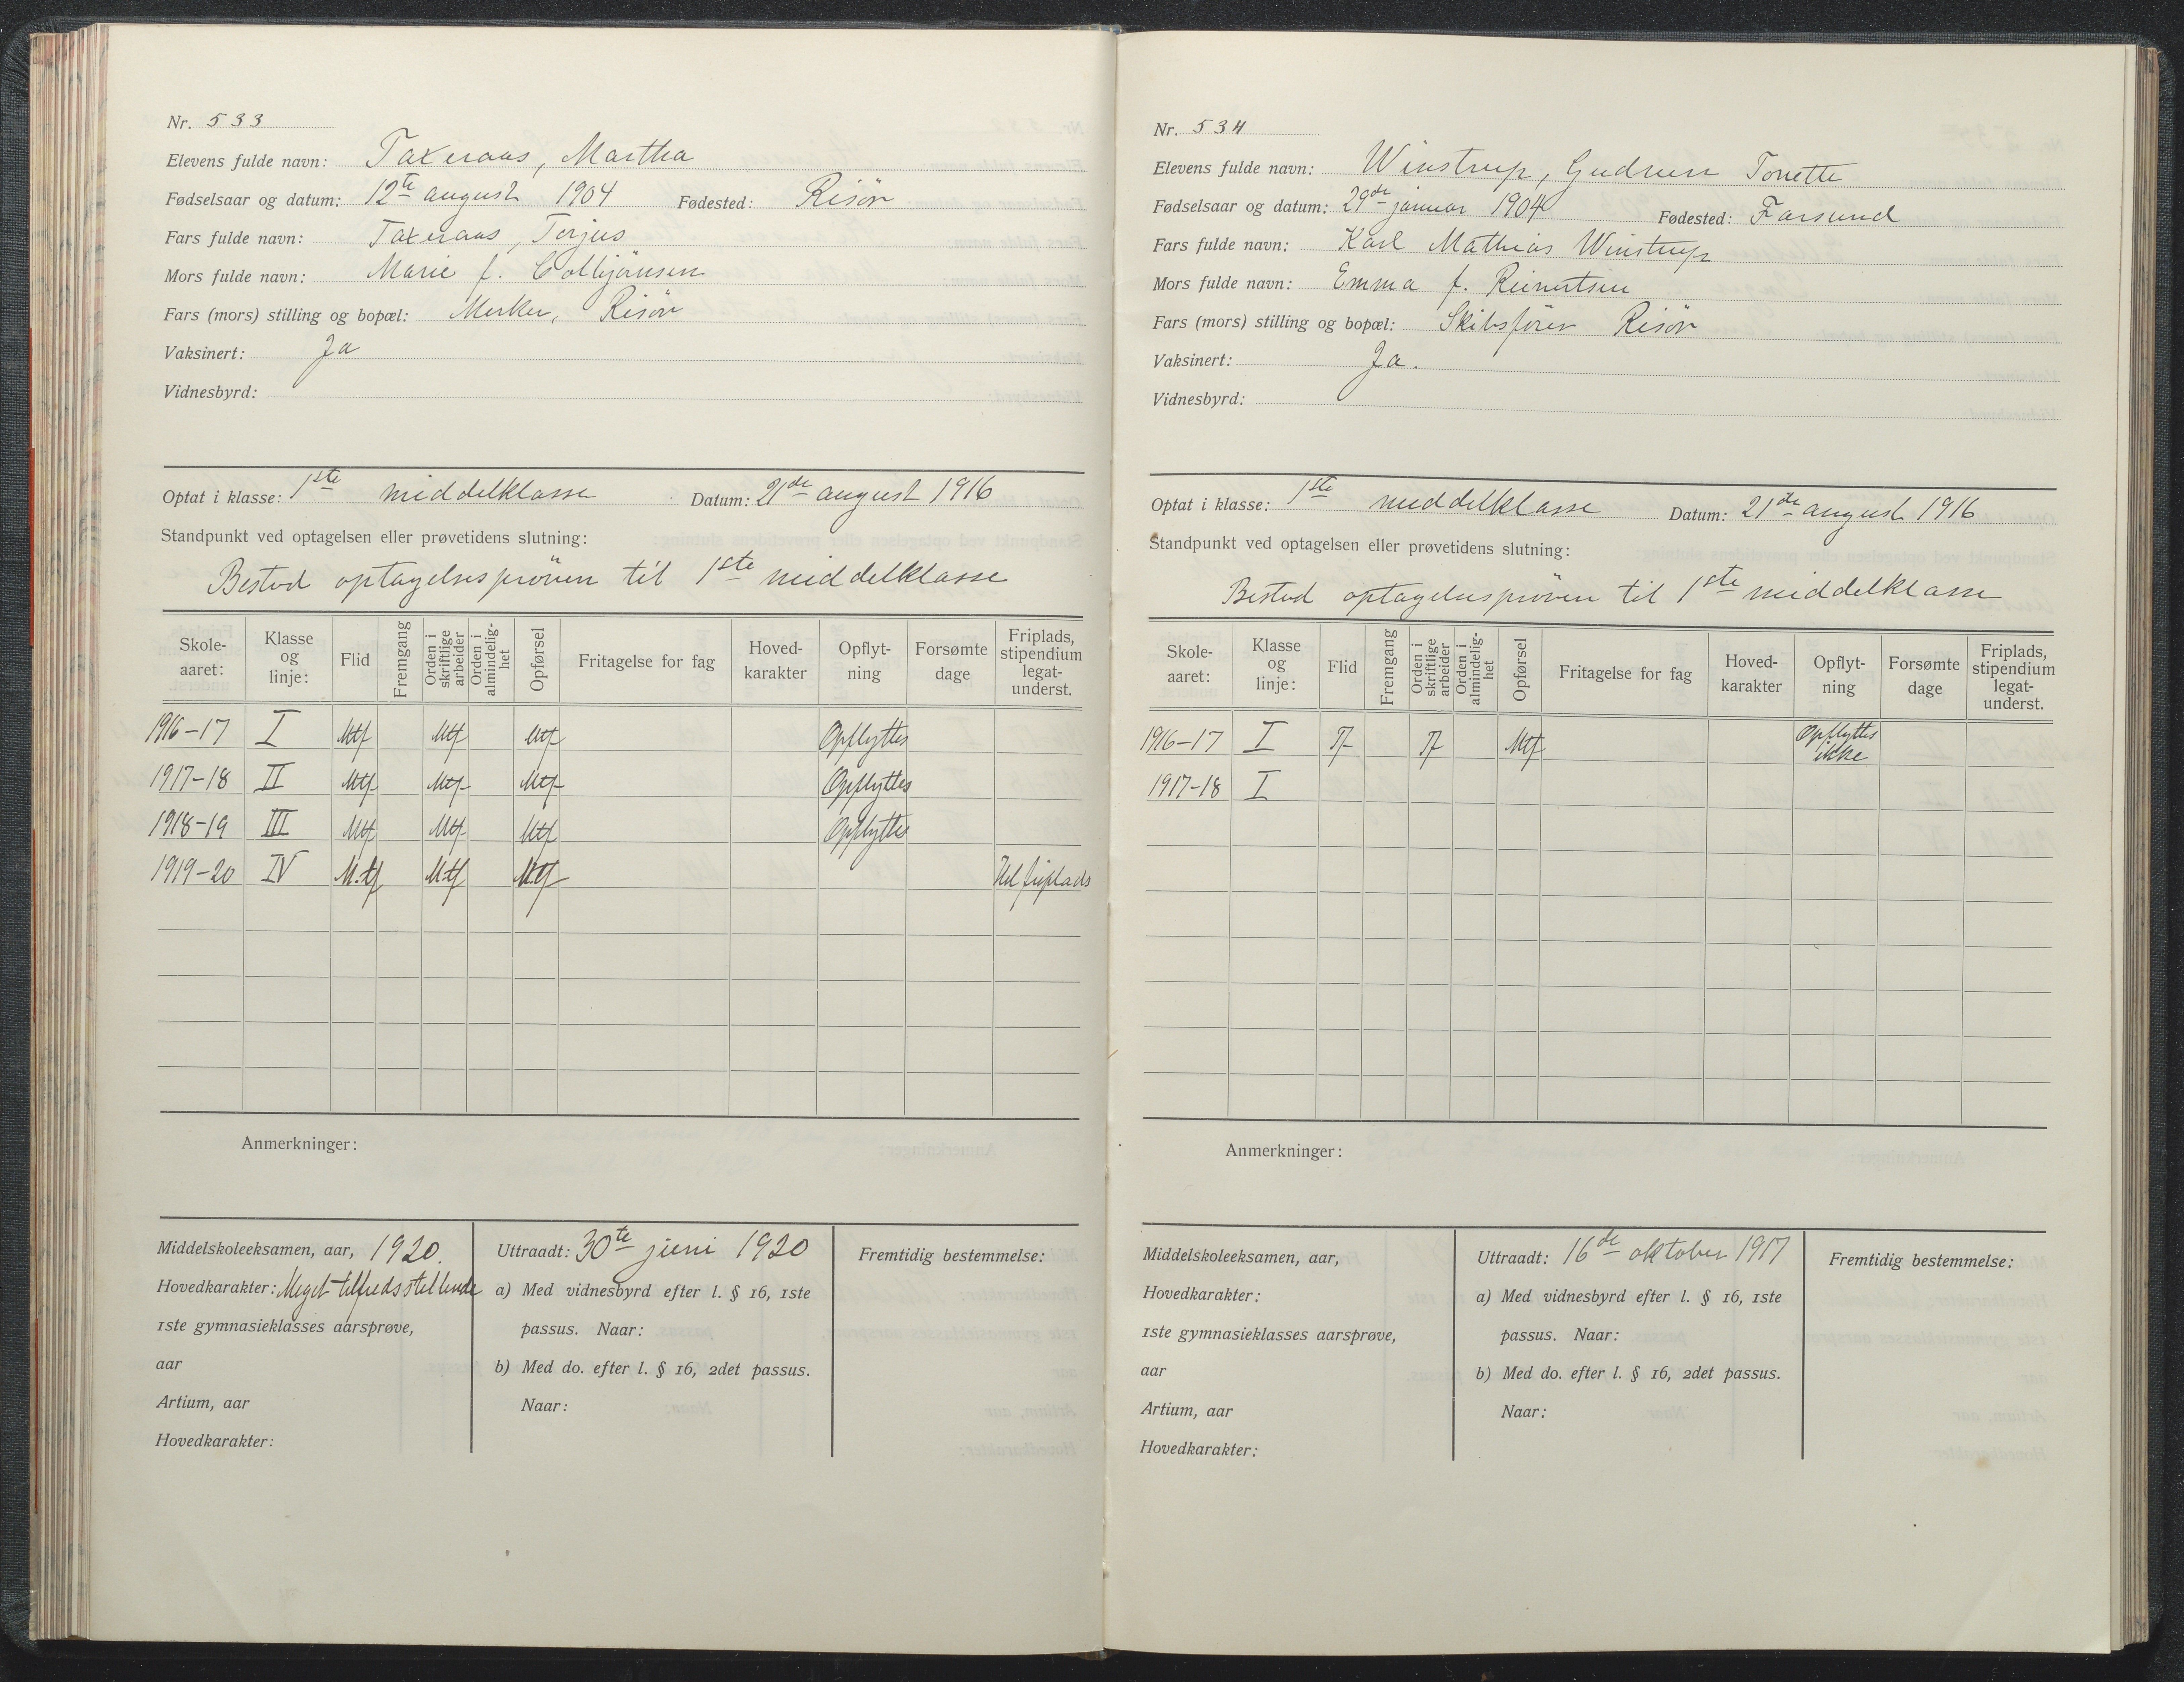 Nr. 533
Elevens fulde navn: Taxeraas, Martha
Fødselsaar og datum: 12te august 1904 Fødested: Risör
Fars fulde navn: Taxeraas, Terjus
Mors fulde navn: Marie f. Colbjörnsen
Fars (mors) stilling og bopæl: Merker, Risör
Vaksinert: Ja
Vidnesbyrd:
Optat i klasse: 1ste middelklasse Datum: 21de august 1916
Standpunkt ved optagelsen eller prøvetidens slutning:
Bestod optagelsespröven til 1ste middelklasse
Skole-aaret: Klasse og linje: Flid Fremgang Orden i skriftlige arbeider Orden i almindelig-het Opførsel Fritagelse for fag Hoved-karakter Opflyt-ning Forsømte dage Friplads, stipendium legat-underst.
1916-17 I Mtf Mtf Mtf Opflyttes
1917-18 II Mtf Mtf Mtf Opflyttes
1918-19 III Mtf Mtf Mtf Opflyttes
1919-20 IV M.tf Mtf Mtf Hel friplads
Anmerkninger:
Middelskoleeksamen, aar, 1920.
Hovedkarakter: Meget tilfredsstillende
1ste gymnasieklasses aarsprøve,
aar
Artium, aar
Hovedkarakter:
Uttraadt: 30te juni 1920
a) Med vidnesbyrd efter l. § 16, 1ste
passus. Naar:
b) Med do. efter l. § 16, 2det passus.
Naar:
Fremtidig bestemmelse:
Nr. 534
Elevens fulde navn: Winstrup, Gudrun Tonette
Fødselsaar og datum: 29de januar 1904 Fødested: Farsund
Fars fulde navn: Karl Mathias Winstrup
Mors fulde navn: Emma f. Reinertsen
Fars (mors) stilling og bopæl: Skibsförer Risör
Vaksinert: Ja.
Vidnesbyrd:
Optat i klasse: 1ste middelklasse Datum: 21de august 1916
Standpunkt ved optagelsen eller prøvetidens slutning:
Bestod optagelsespröven til 1ste middelklasse
Skole-aaret: Klasse og linje: Flid Fremgang Orden i skriftlige arbeider Orden i almindelig-het Opførsel Fritagelse for fag Hoved-karakter Opflyt-ning Forsømte dage Friplads, stipendium legat-underst.
1916-17 I Tf Tf Mtf Opflyttes ikke
1917-18 I
Anmerkninger:
Middelskoleeksamen, aar,
Hovedkarakter:
1ste gymnasieklasses aarsprøve,
aar
Artium, aar
Hovedkarakter:
Uttraadt: 16de oktober 1917
a) Med vidnesbyrd efter l. § 16, 1ste
passus. Naar:
b) Med do. efter l. § 16, 2det passus.
Naar:
Fremtidig bestemmelse: